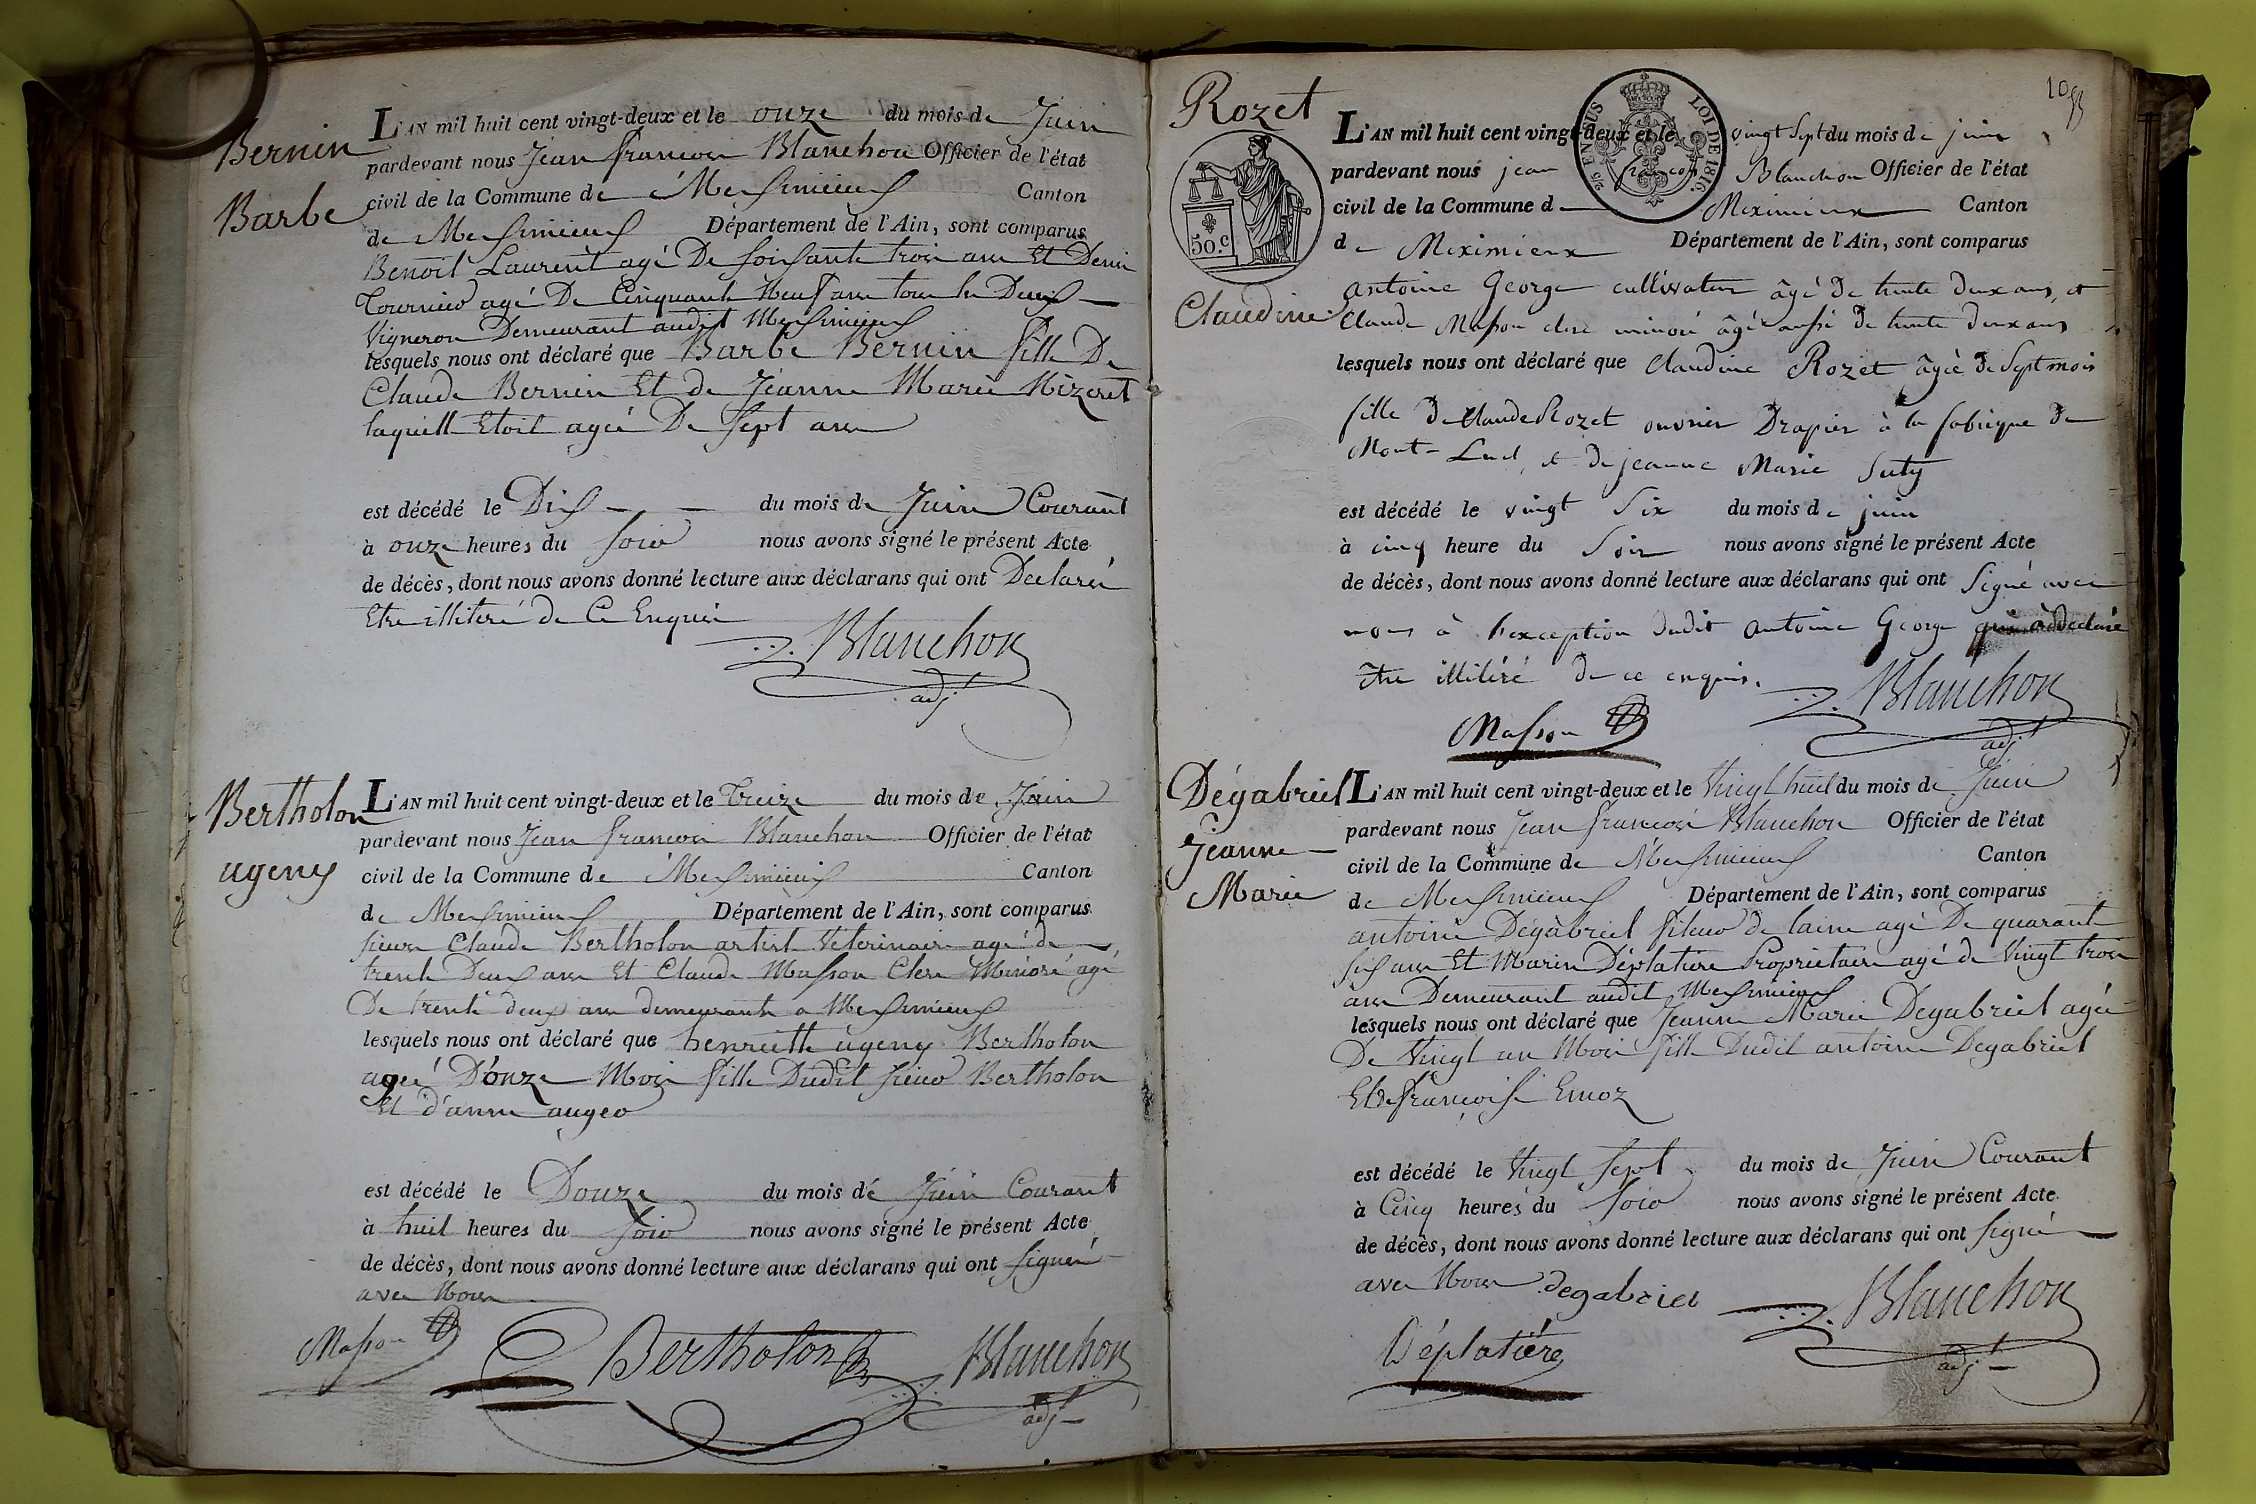 Bernin
Barbe
L'AN mil huit cent vingt-deux et le onze du mois de Juin
pardevant nous Jean francois Blanchon Officier de l'état
civil de la Commune de Meximieux Canton
de Meximieux Département de l'Ain, sont comparus
Benoit Laurent agé De soixante trois ans Et Denis
agé De Cinquante Neuf ans tous les Deux
Vigneron Demeurant audit Meximieux
lesquels nous ont déclaré que Barbe Bernin fille De
Claude Bernin Et de Jeanne Marie Mizeret
laquelle Etoit agée De sept ans
est décédé le Dix du mois de Juin Courant
à onze heures du soir nous avons signé le présent Acte
de décès, dont nous avons donné lecture aux déclarans qui ont Declaré
Etre illiteré de Ce Enquis
Blanchon
adjt
Bertholon
ugeny
L'AN mil huit cent vingt-deux et le Treize du mois de Juin
pardevant nous Jean francois Blanchon Officier de l'état
civil de la Commune de Meximieux Canton
de Meximieux Département de l'Ain, sont comparus
sieur Claude Bertholon artist Véterinaire agé de
trente Deux ans Et Claude Masson Clerc Minoré agé
De trente deux ans demeurants a Meximieux
lesquels nous ont déclaré que henriette ugeny Bertholon
ageé D'onze Mois fille Dudit sieur Bertholon
Et d'anne auger
est décédé le Douze du mois de Juin Courant
à huit heures du soir nous avons signé le présent Acte
de décès, dont nous avons donné lecture aux déclarans qui ont signé
avec Nous
Masson
Bertholon
Blanchon
adjt
105
Rozet
Claudine
50.c
2/5 EN SUS LOI DE 1816.
L'AN mil huit cent vingt-deux et le vingt Sept du mois de juin
pardevant nous jean françois Blanchon Officier de l'état
civil de la Commune d Meximieux Canton
de Meximieux Département de l'Ain, sont comparus
antoine George cultivateur âgé de trente deux ans, et
Claude Masson clerc minoré âgé aussi de trente deux ans
lesquels nous ont déclaré que Claudine Rozet âgée de Sept mois
fille de Claude Rozet ouvrier Drapier à la fabrique de
Mont-Luel, et de jeanne Marie Suty
est décédé le vingt Six du mois de juin
à cinq heure du Soir nous avons signé le présent Acte
de décès, dont nous avons donné lecture aux déclarans qui ont Signé avec
nous à l'exception dudit antoine George qui à déclaré
être illitéré de ce enquis.
Masson
Blanchon
adjt
Dégabriel
Jeanne
Marie
L'AN mil huit cent vingt-deux et le Vingt huit du mois de Juin
pardevant nous Jean francois Blanchon Officier de l'état
civil de la Commune de Meximieux Canton
de Meximieux Département de l'Ain, sont comparus
antoine Dégabriel fileur de laine agé De quarante
six ans Et Marin Déplatière Proprietaire agé de Vingt trois
ans Demeurant audit Meximieux
lesquels nous ont déclaré que Jeanne Marie Degabriel agée
De Vingt un Mois fille Dudit antoine Degabriel
Et de francoise Emoz
est décédé le Vingt sept du mois de Juin Courant
à Cinq heures du soir nous avons signé le présent Acte
de décès, dont nous avons donné lecture aux déclarans qui ont signé
avec Nous
degabriel
Déplatière
Blanchon
adjt